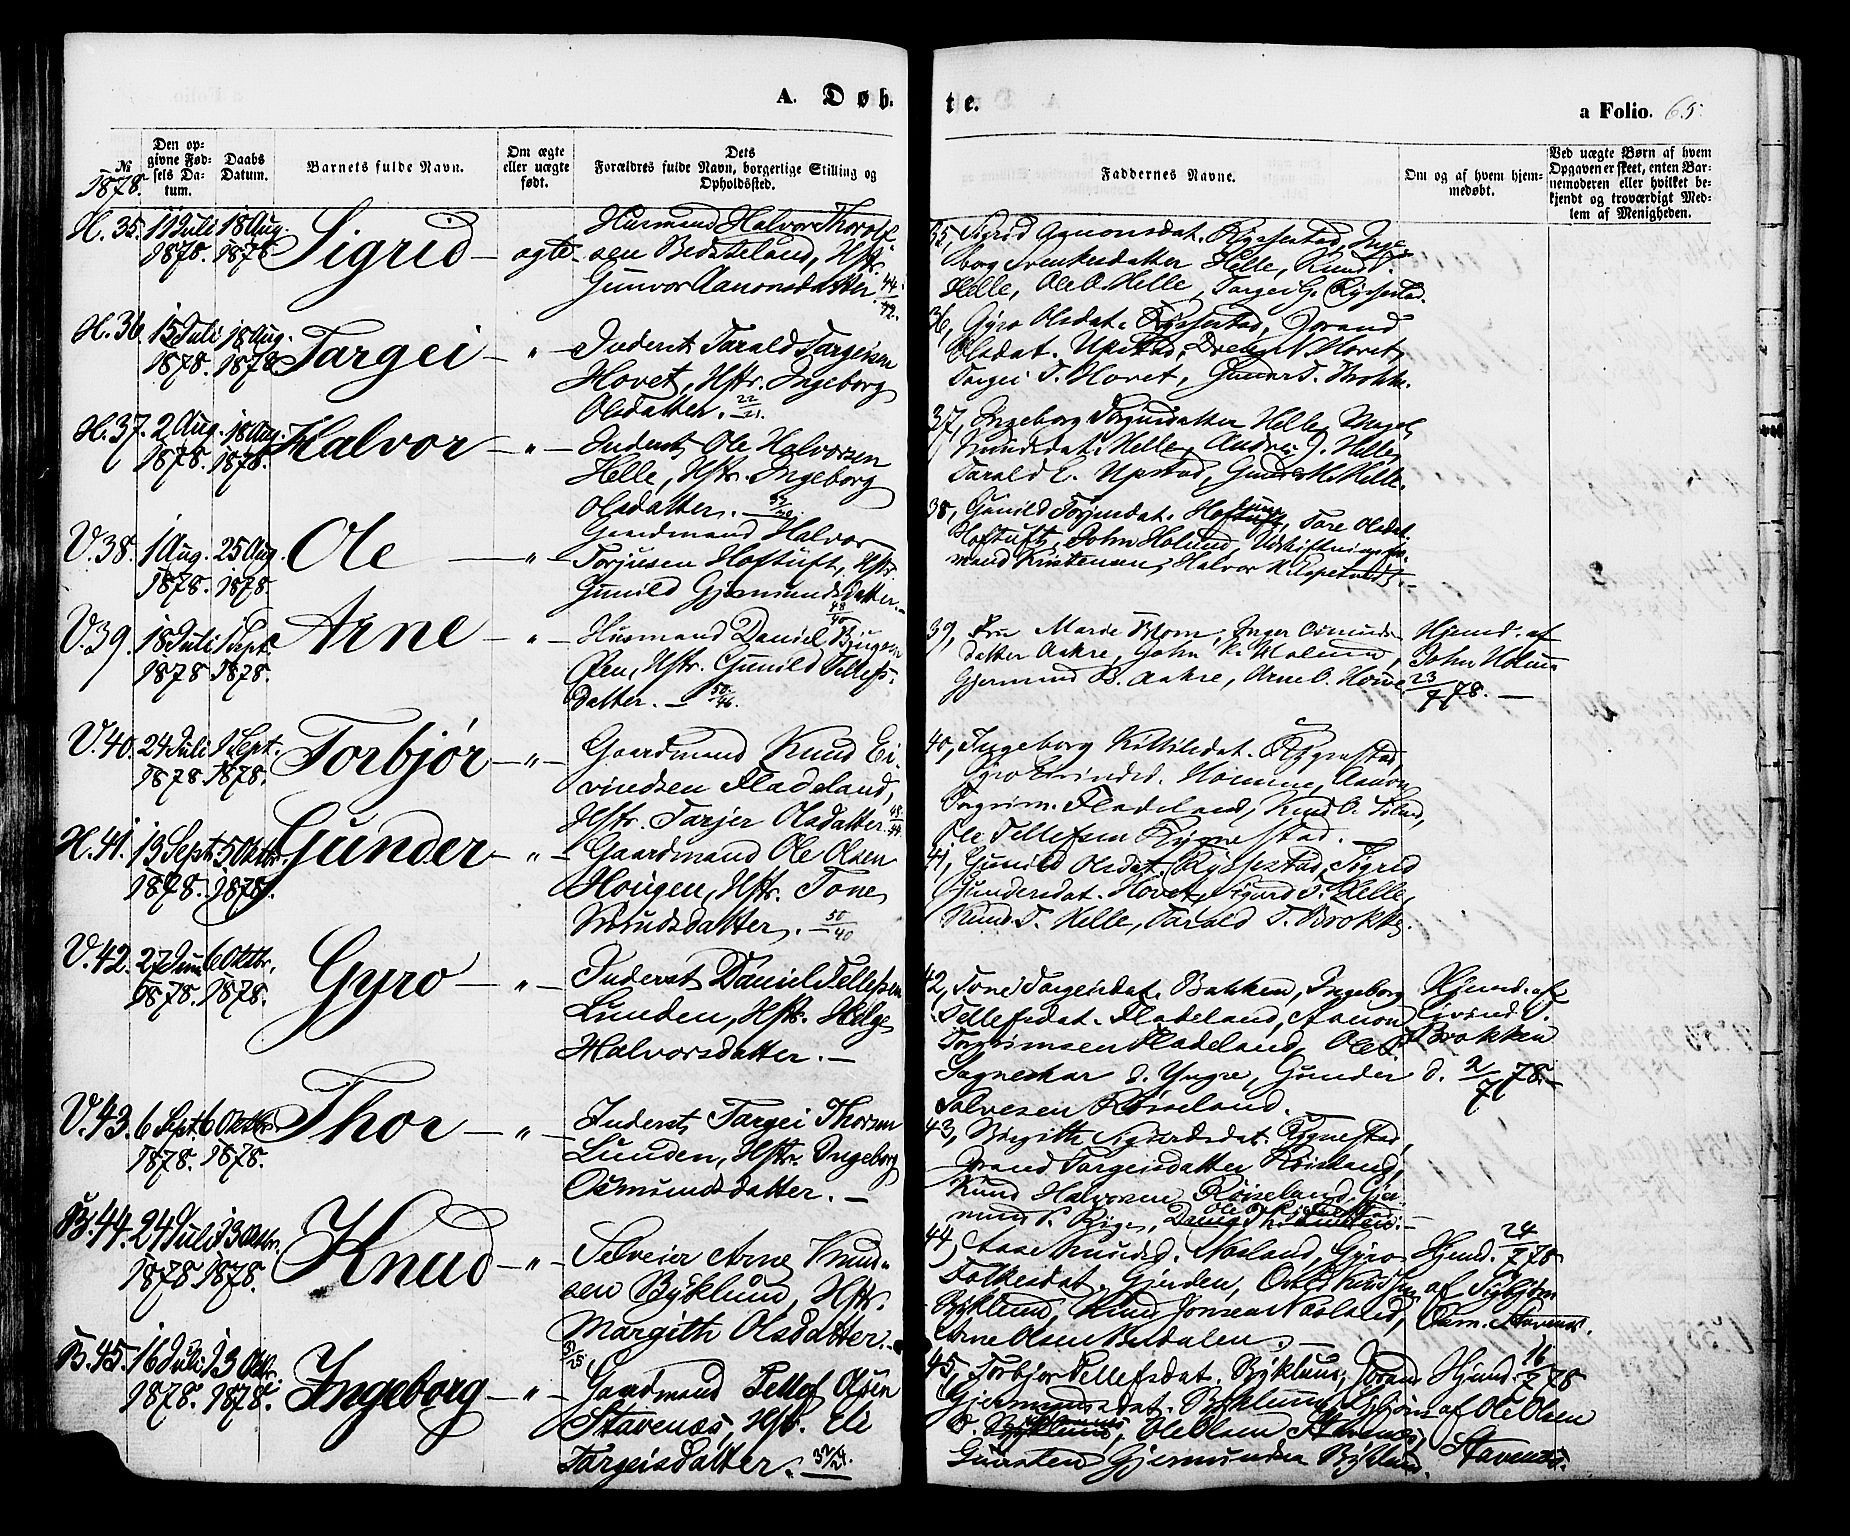 A. Døb.
te.
a Folio. 65.
№
1878.
Den op-
givne Fød-
sels Da-
tum.
Daabs
Datum.
Barnets fulde Navn.
Om ægte
eller uægte
født.
Dets
Forældres fulde Navn, borgerlige Stilling og
Opholdssted.
Faddernes Navne.
Om og af hvem hjem-
medøbt.
Ved uægte Børn af hvem
Opgaven er skeet, enten Bar-
nemoderen eller hvilket be-
kjendt og troværdigt Med-
lem af Menigheden.
H. 35. 11 Juli 18 Aug.
1878. 1878
Sigrid — ægte
Husmand Halvor
sen Bedsteland, Hstr.
Gunvor Aanonsdatter. 44/42.
35, Sigrid Aanonsdat. Ryssestad, Inge-
borg datter Helle, Knud
Helle, Ole O. Helle, Targei G. Ryssestad.
H. 36 15 Juli 18 Aug.
1878. 1878
Targei — " —
Inderst Tarald Targeisen
Hovet, Hstr. Ingeborg
Olsdatter. 22/21.
36, Gyro Olsdat. Rysse­stad, Jorand
Olsdat. Upstad, Hovet,
Targei T. Hovet, Gunder T.
H. 37. 2 Aug. 18 Aug.
1878. 1878.
Halvor — " —
Inderst Ole Halvorsen
Helle, Hstr. Ingeborg
Olsdatter.
37, Ingeborg datter Helle,
Knudsdat. Helle, J. Helle,
Tarald E. Upstad, Helle.
V. 38. 1 Aug. 25 Aug.
1878. 1878.
Ole — " —
Gaardmand Halvor
Torjusen Hoftuft, Hstr.
Gunild Gjermundsdatter. 48/40
38, Gunild Torjusdat. Tore Olsdat.
Hoftuft, John Holund,
mand Halvor
V. 39. 18 Juli 1 Sept.
1878 1878.
Arne — " —
Husmand Daniel
Hstr. Gunild Tellefs-
datter. — 50/46.
39, Fru Marie Blom, Inger Osmunds-
datter Aakre, John K. Holund,
Gjermund B. Aakre, Arne O.
Hjemd. af
John Holund
23/7 78. —
V. 40. 24 Juli 1 Sept.
1878 1878.
Torbjør — " —
Gaardmand Knud Ei-
vindsen Fladeland,
Hstr. Tarjer Olsdatter.
40, Ingeborg Kittilsdat. Rygnestad,
Gyro Eivindsd. Homme, Aanon
Torgrim. Fladeland, Knud O.
Ole Tellefsen Rygnestad. —
H. 41. 13 Sept. 5 Oktbr.
1878. 1878.
Gunder — " —
Gaardmand Ole Olsen
Hougen, Hstr. Tone
Knudsdatter. 50/40
41, Gunild Olsdat. Rysse­stad, Sigrid
Gundersdat. Hovet, Sigurd T. Helle,
Knud T. Helle, Tarald T. Brokke.
V. 42. 27 Juni 6 Oktbr.
1878. 1878.
Gyro — " —
Inderst Daniel Tellefsen
Lunden, Hstr. Helge
Halvorsdatter. —
42, Tone Targeisdat. Bakken, Ingeborg
Tellefsdat. Fladeland, Aanon
Torgrimsen Fladeland, Ole
d. Yngre, Gunder
Salvesen Røiseland.
Hjemd. af
Eivind O.
Brokken
d. 2/7 78. —
V. 43. 6 Sept. 6 Oktbr.
1878. 1878.
Thor — " —
Inderst, Targei Thorsen
Lunden, Hstr. Ingeborg
Osmundsdatter. —
43, Birgith Sigurdsdat. Rygnestad,
Jorand Targeisdatter Røiseland,
Knud Halvorsen Røiseland, Gjer-
mund
B. 44. 24 Juli 13 Oktbr.
1878 1878.
Knud — " —
Selveier Arne Knud-
sen Býklund, Hstr.
Margith Olsdatter. —
44, Aase Knudsd. Nasland, Gyro
Folkesdat. Gjerden, Knudsen
Býklund, Knud Jonsen Nasland,
Arne Olsen Berdalen. —
Hjemd. 24/7 78
af
Stavenes.
B. 45. 16 Juli 13 Okt.
1878. 1878.
Ingeborg — " —
Gaardmand Tellef Olsen
Stavenes, Hstr. Eli
Targeisdatter. 37/31.
45, Torbjør Tellefsdat. Býklund, Jorand
Gjermundsdat. Býklund,
Ole Olsen Stavenes,
Gunsten Gjermundsen Býklund.
Hjemd. 16/7 78
af Ole Olsen
Stavenes.